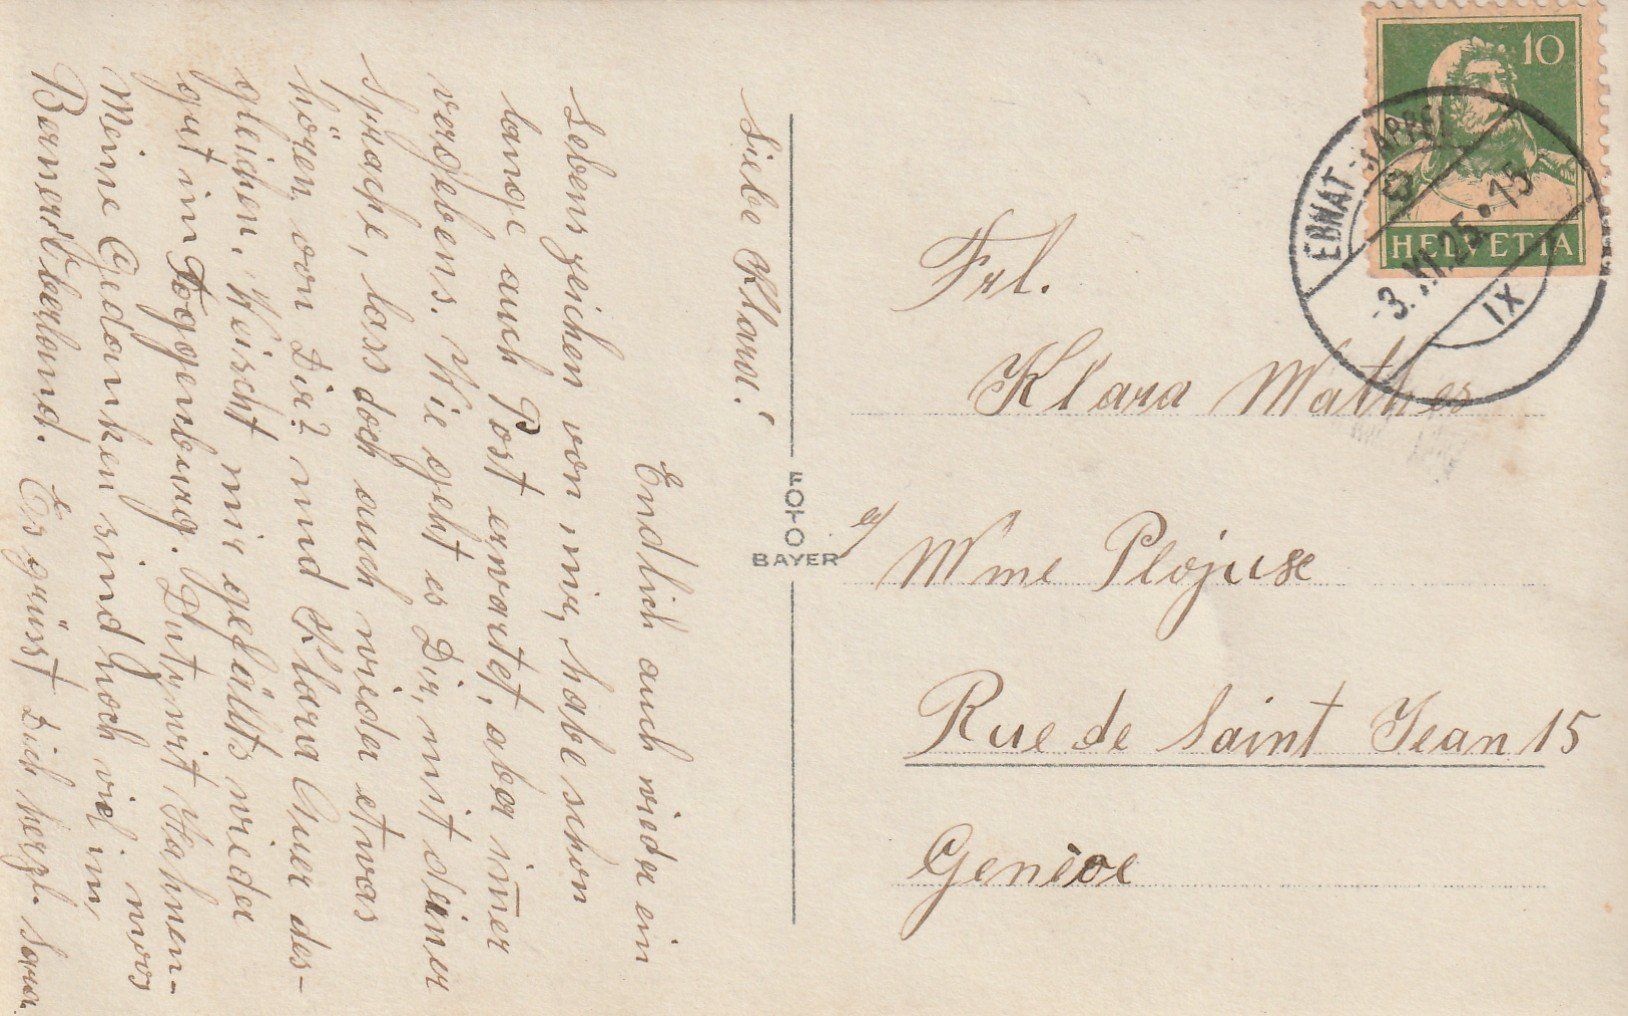 Liebe Klara!
Endlich auch wieder ein
Lebenszeichen von mir, habe schon
lange auch Post erwartet, aber im̄er
vergebens. Wie geht es Dir, mit deiner
Sprache, lass doch auch wieder etwas
hören von Dir? und Klara Auer des-
gleichen. Weisst mir gefällts wieder
gut im Toggenburg.
Meine Gedanken sind noch viel im,
Berneroberland. Es grüsst Dich herzl.
Frl.
Klara Mathes
Mme
Rue de Saint Jean 15
Genève
FOTO
BAYER
10
HELVETIA
EBNAT-KAPPEL
-3.XI.25.15
IX